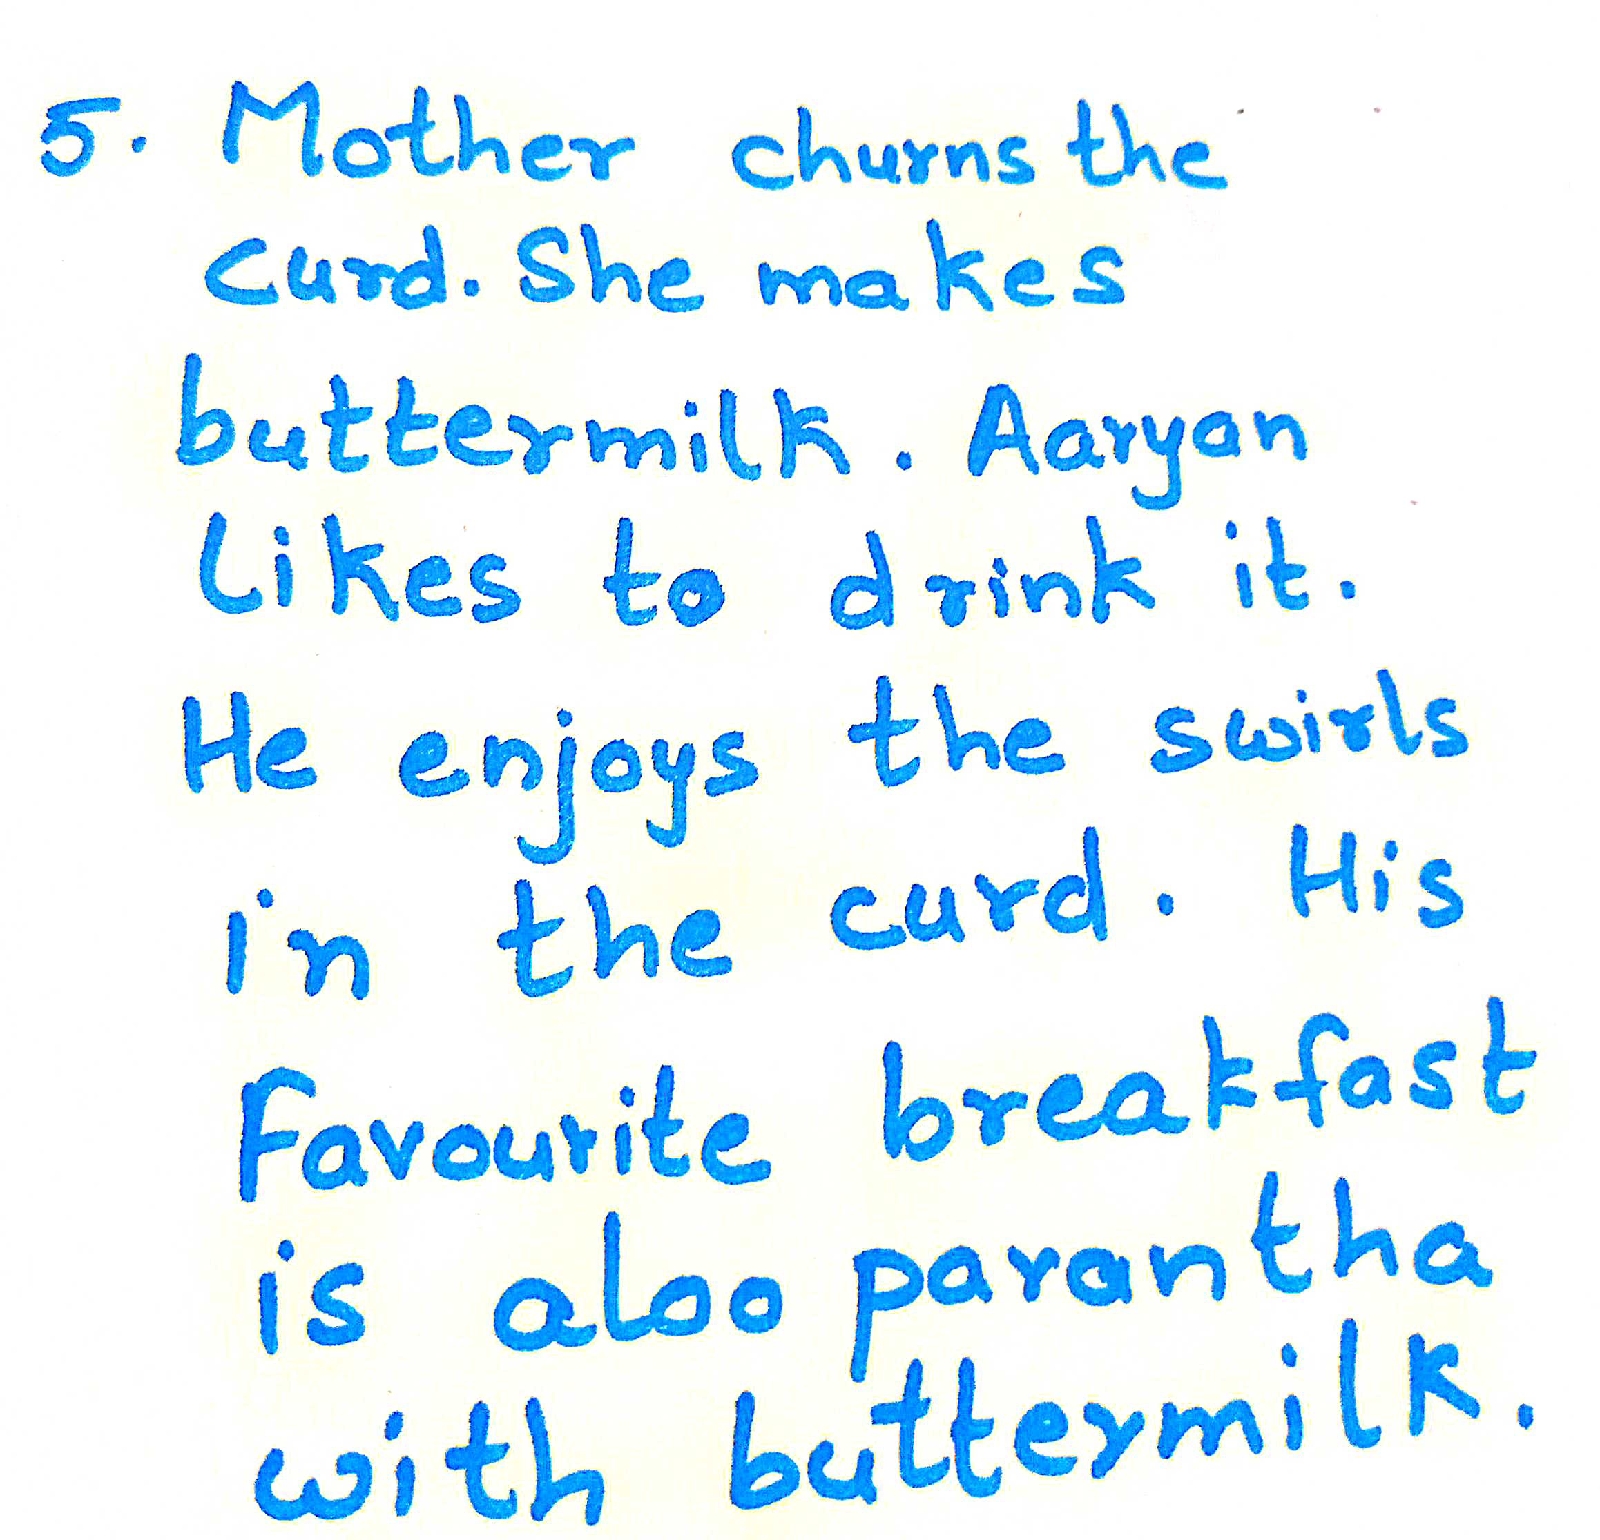 5. Mother churns the
curd. She makes
buttermilk. Aaryan
likes to drink it.
He enjoys the swirls
in the curd. His
Favourite breakfast
is aloo parantha
with buttermilk.